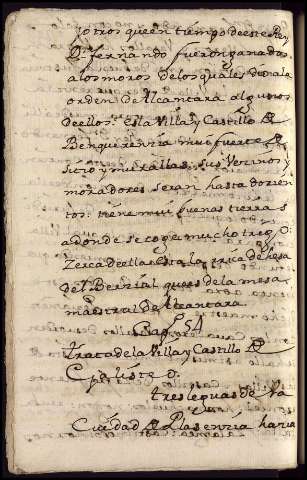 y otros que en tiempo de este Rey
D. fernando fueron ganados
a los moros de los quales dio a la
orden de Alcantara algunos
de ellos. es la Villa y Castillo de
Benquerenzia muy fuerte de
sitio y murallas, sus Vecinos y
moradores seran hasta dozien
tos. tiene mui buenas tierras
a donde se coge mucho trigo:
Zerca de ella esta la rica dehesa
del Berzial que es de la mesa
maestral de Alcantara
Cap.º 54
Trata de la Villa y Castillo de
tres leguas de la
Ciudad de Plasenzia hazia